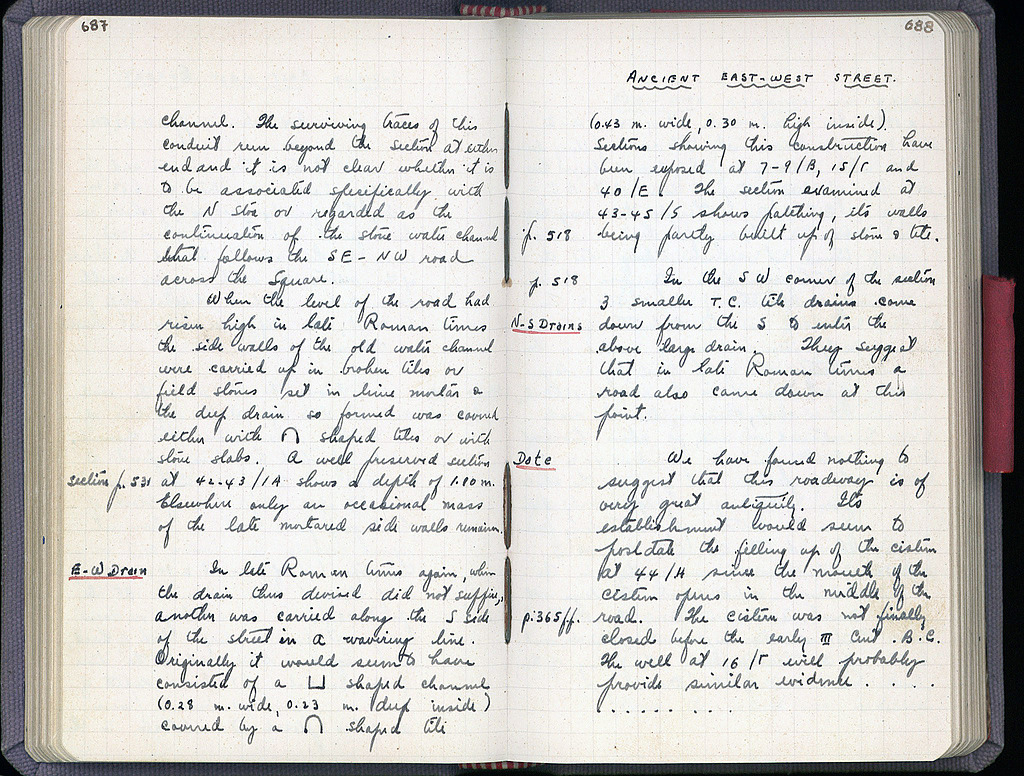 687
channel. The surviving traces of this
conduit run beyond the section at either
end and it is not clear whether it is
to be associated specifically with
the N Stoa or regarded as the
continuation of the stone water channel
that follows the SE-NW road
across the Square.
When the level of the road had
risen high in late Roman times
the side walls of the old water channel
were carried up in broken tiles or
field stones set in lime mortar &
the deep drain so formed was covered
either with ∩ shaped tiles or with
stone slabs. A well preserved section
section p. 531 at 42-43/1A shows a depth of 1.10 m.
Elsewhere only an occasional mass
of the late mortared side walls remains.
E-W Drain In late Roman times again, when
the drain thus devised did not suffice,
another was carried along the S side
of the street in a wavering line.
Originally it would seem to have
consisted of a ⊔ shaped channel
(0.28 m. wide, 0.23 m. deep inside)
covered by a ∩ shaped tile
688
ANCIENT EAST-WEST STREET.
(0.43 m. wide, 0.30 m. high inside).
Sections showing this construction have
been exposed at 7-9/B, 15/Γ and
40/E. The section examined at
43-45/5 shows patching, its walls
p. 518 being partly built up of stone & tile.
p. 518 In the SW corner of the section
3 smaller T.C. tile drains come
N-S Drains down from the S to enter the
above large drain. They suggest
that in late Roman times a
road also came down at this
point.
Date We have found nothing to
suggest that this roadway is of
very great antiquity. Its
establishment would seem to
postdate the filling up of the cistern
at 44/H since the mouth of the
cistern opens in the middle of the
p. 365 ff. road. The cistern was not finally
closed before the early III Cent. B.C.
The well at 16/Γ will probably
provide similar evidence . . . .
. . . . . . . . .